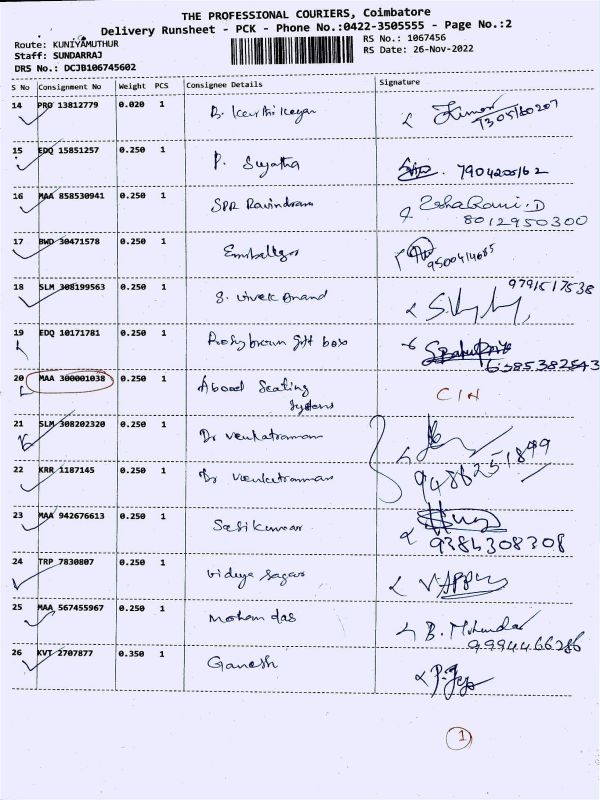 THE PROFESSIONAL COURIERS, Coimbatore
Delivery Runsheet - PCK - Phone No.:0422-3505555 - Page No.:2
Route: KUNIYAMUTHUR
RS No.: 1067456
Staff: SUNDARRAJ
RS Date: 26-Nov-2022
DRS No.: DCJB106745602
S No Consignment No Weight PCS Consignee Details Signature
14 PRO 13812779 0.020 1
15 EDQ 15851257 0.250 1 P. Sujatha
16 MAA 858530941 0.250 1 SPR Ravindram
8012950300
17 BWD 30471578 0.250 1
9500414685
18 SLM 308199563 0.250 1 S. Vivek Anand 9791517538
19 EDQ 10171781 0.250 1 gift box
6385382543
20 MAA 300001038 0.250 1 Seating
Systems
21 SLM 308202320 0.250 1 Dr Venkatramam
9486251899
22 KRR 1187145 0.250 1 Dr
23 MAA 942676613 0.250 1 Sasikumar
9384308308
24 TRP 7830807 0.250 1 Vidya Sagar
25 MAA 567455967 0.250 1 Mohamdas
9994466286
26 KVT 2707877 0.350 1 Ganesh
1